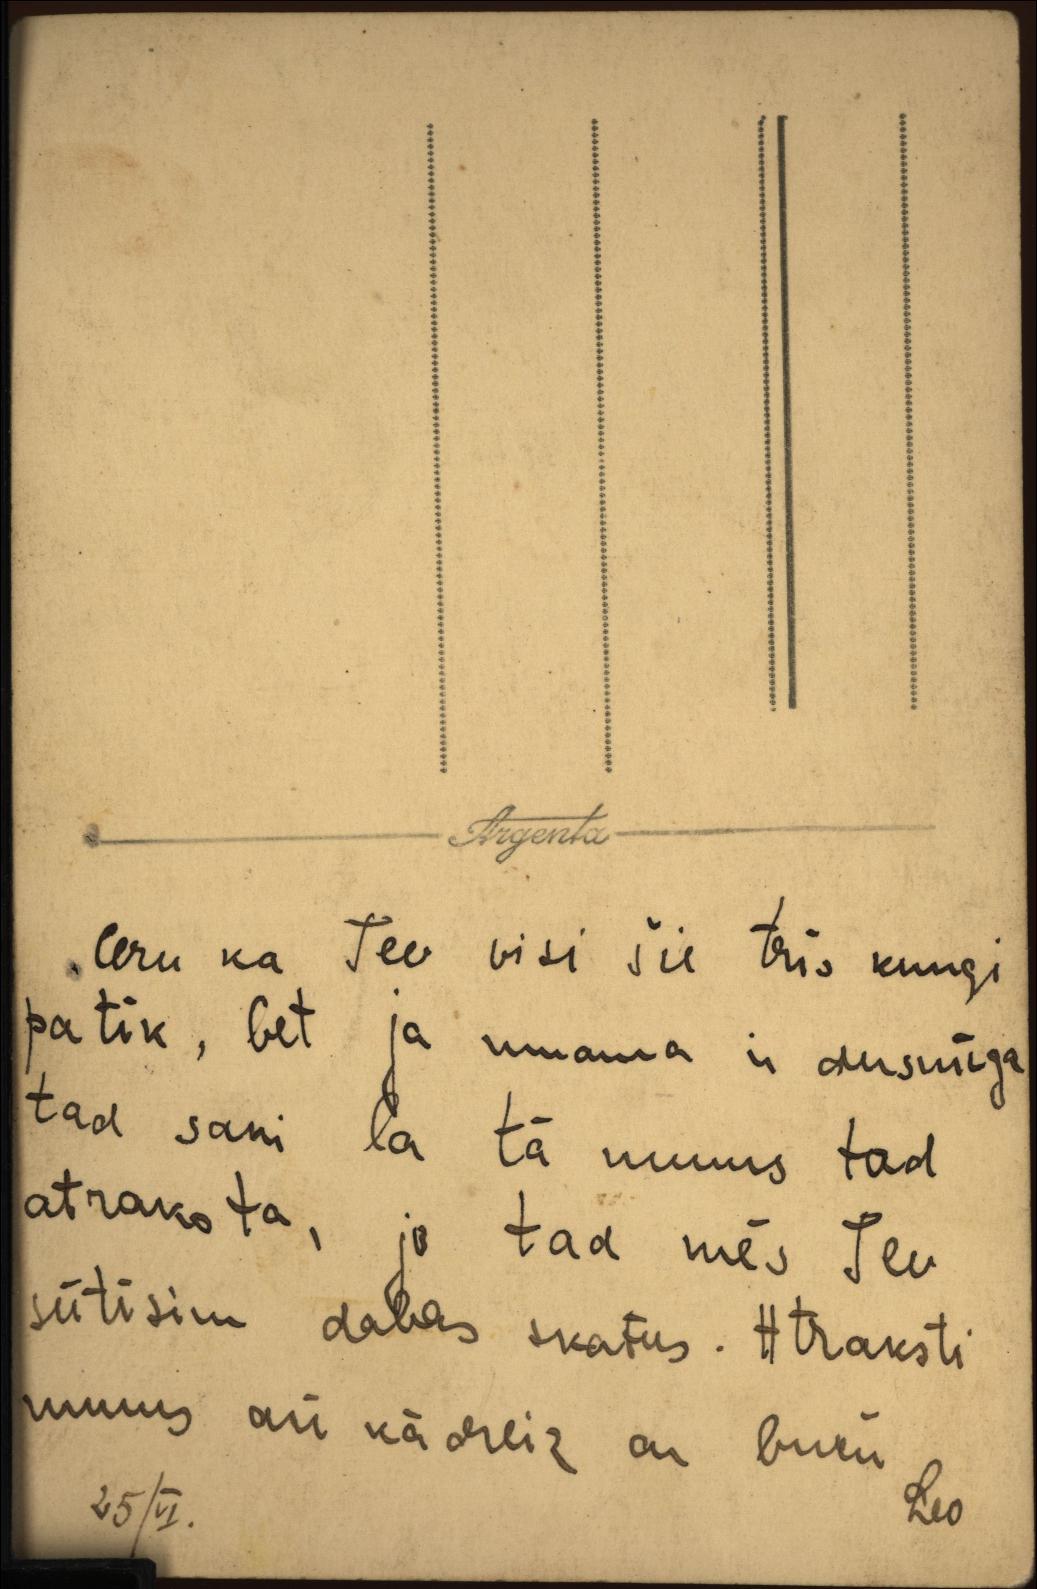 Argenta
Ceru ka Tev visi šie trīs kungi
patīk, bet ja mamma ir dusmīga
tad sani la tā mums tad
atraksta, jo tad mēs Tev
sūtīsim dabas skatus. Atraksti
mums arī kādreiz
25/VI. Leo